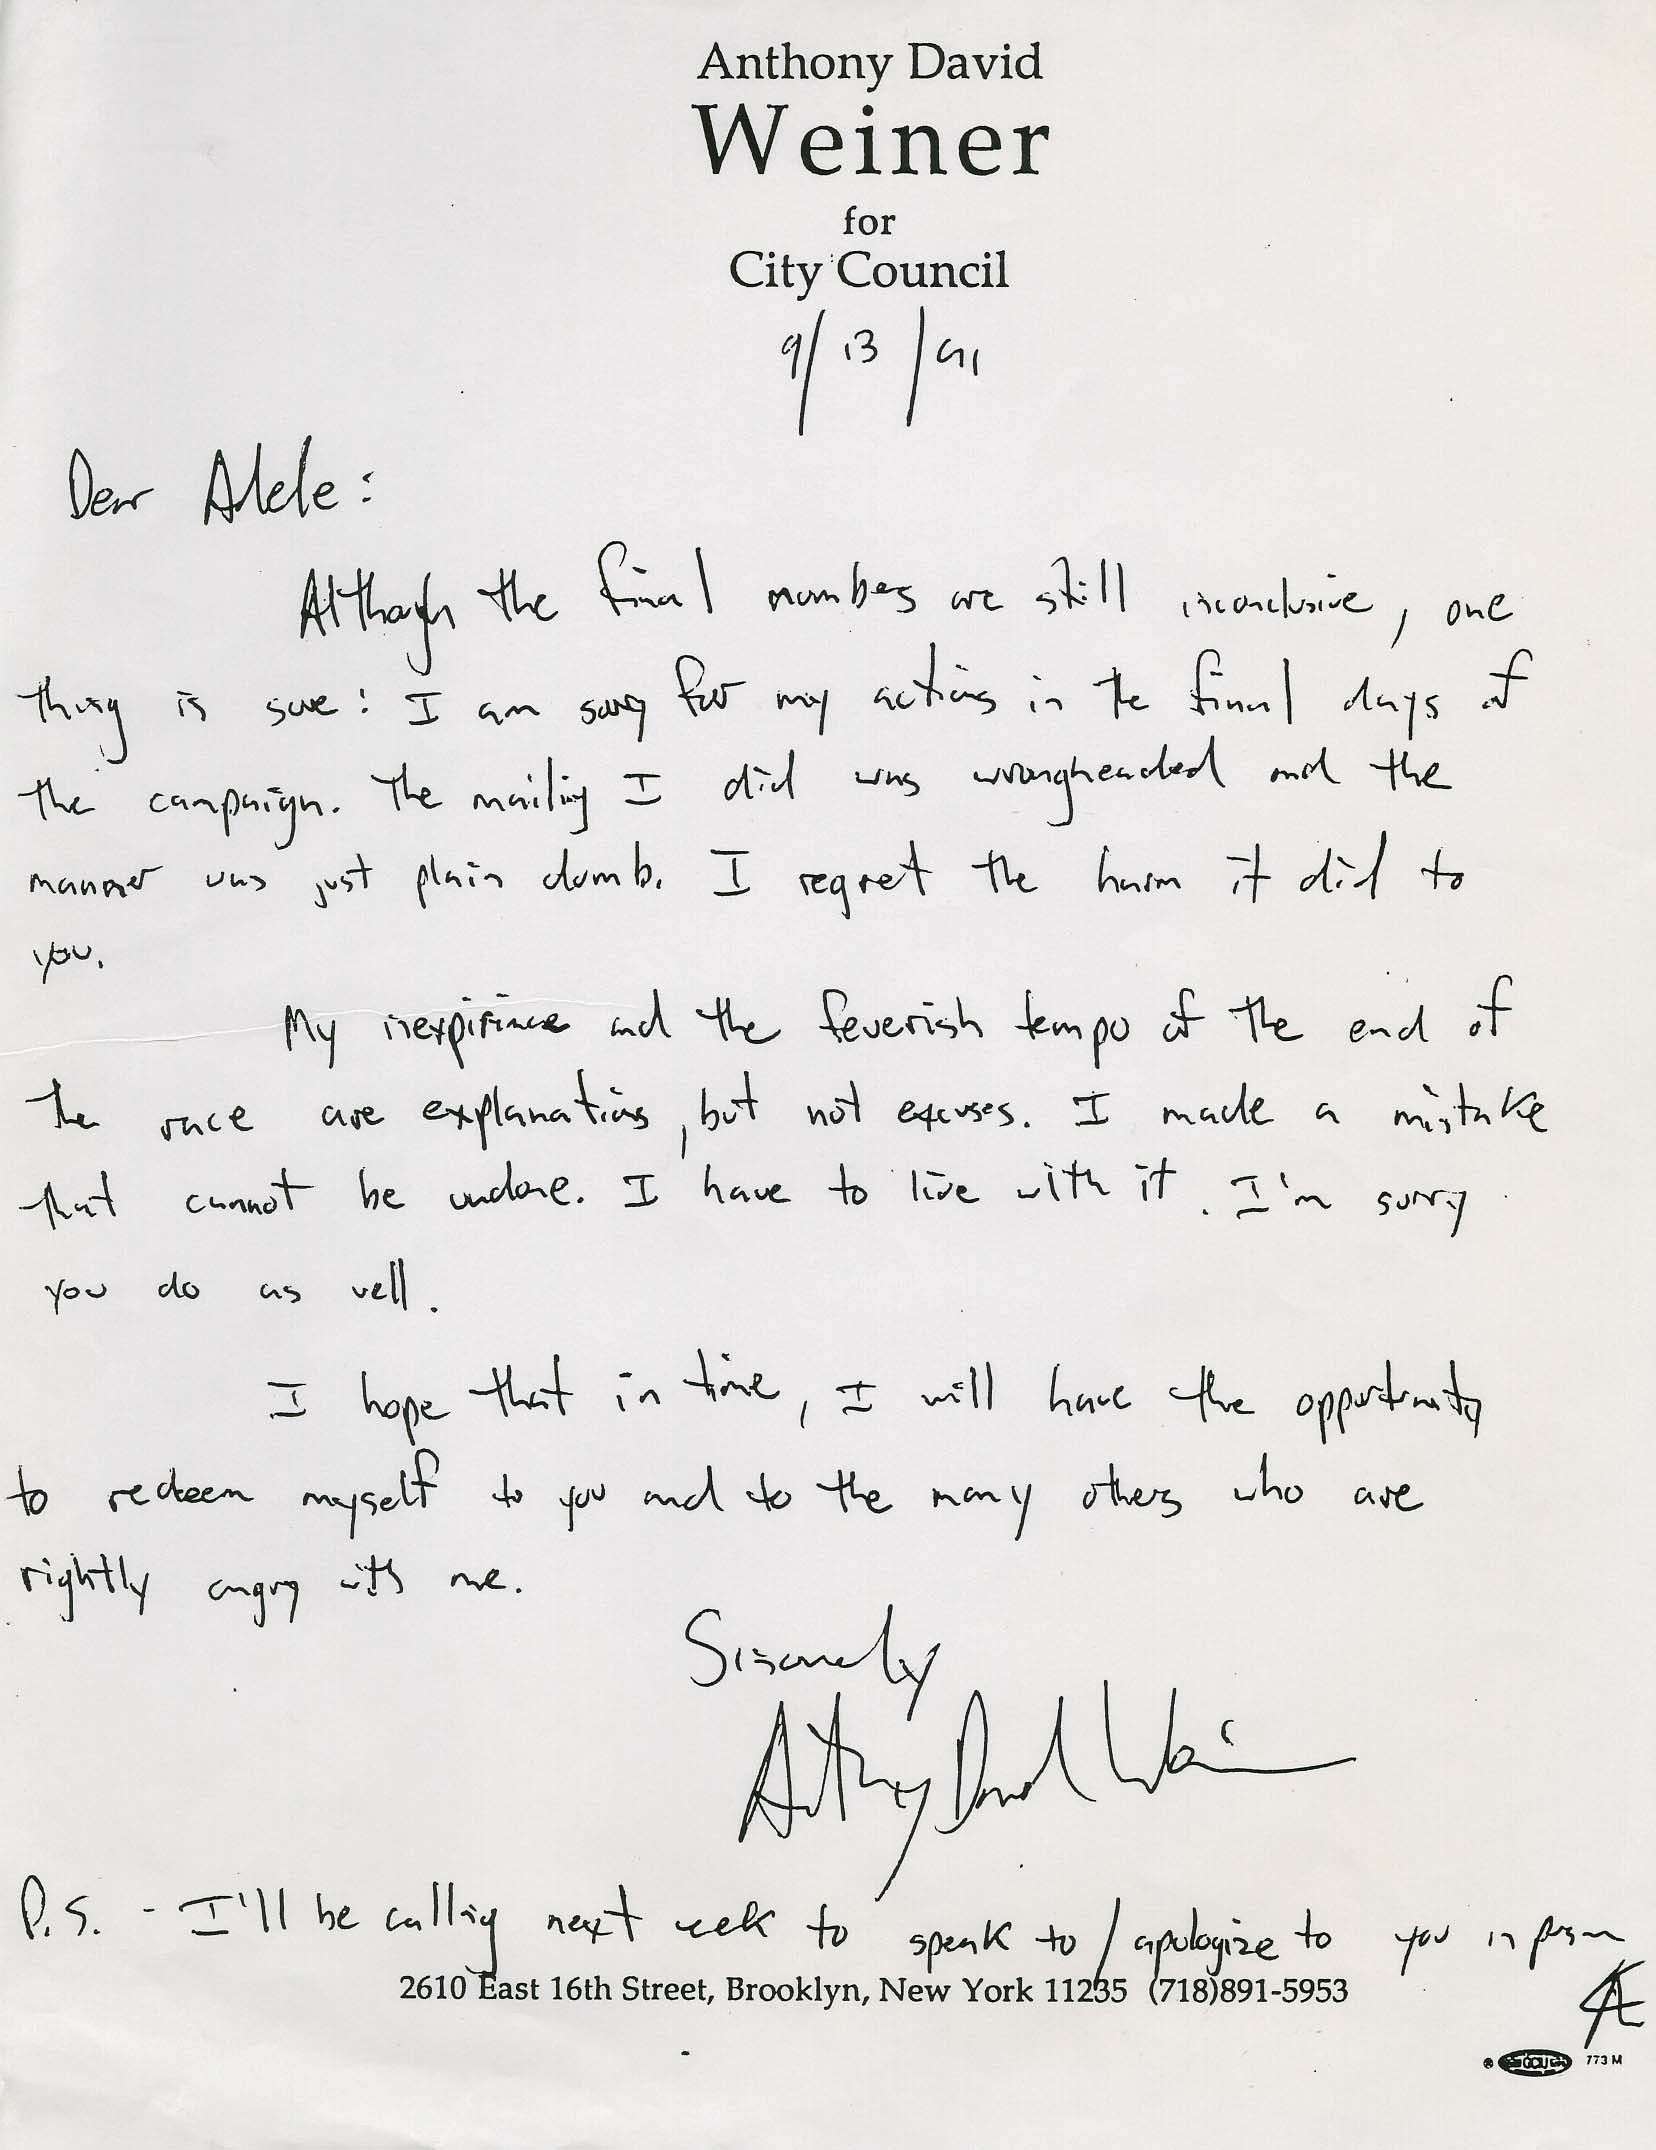 Anthony David
Weiner
for
City Council
9/13/91
Dear Adele:
Although the final numbers are still inconclusive, one
thing is sure: I am sorry for my actions in the final days of
the campaign. The mailing I did was wrongheaded and the
manner was just plain dumb. I regret the harm it did to
you.
My inexpirience and the feverish tempo of the end of
the race are explanations, but not excuses. I made a mistake
that cannot be undone. I have to live with it. I'm sorry
you do as well.
I hope that in time, I will have the opportunity
to redeem myself to you and to the many others who are
rightly angry with me.
Sincerely
Anthony David Weiner
P.S. - I'll be calling next week to speak to / apologize to you in person
2610 East 16th Street, Brooklyn, New York 11235 (718)891-5953
GCIU 773 M